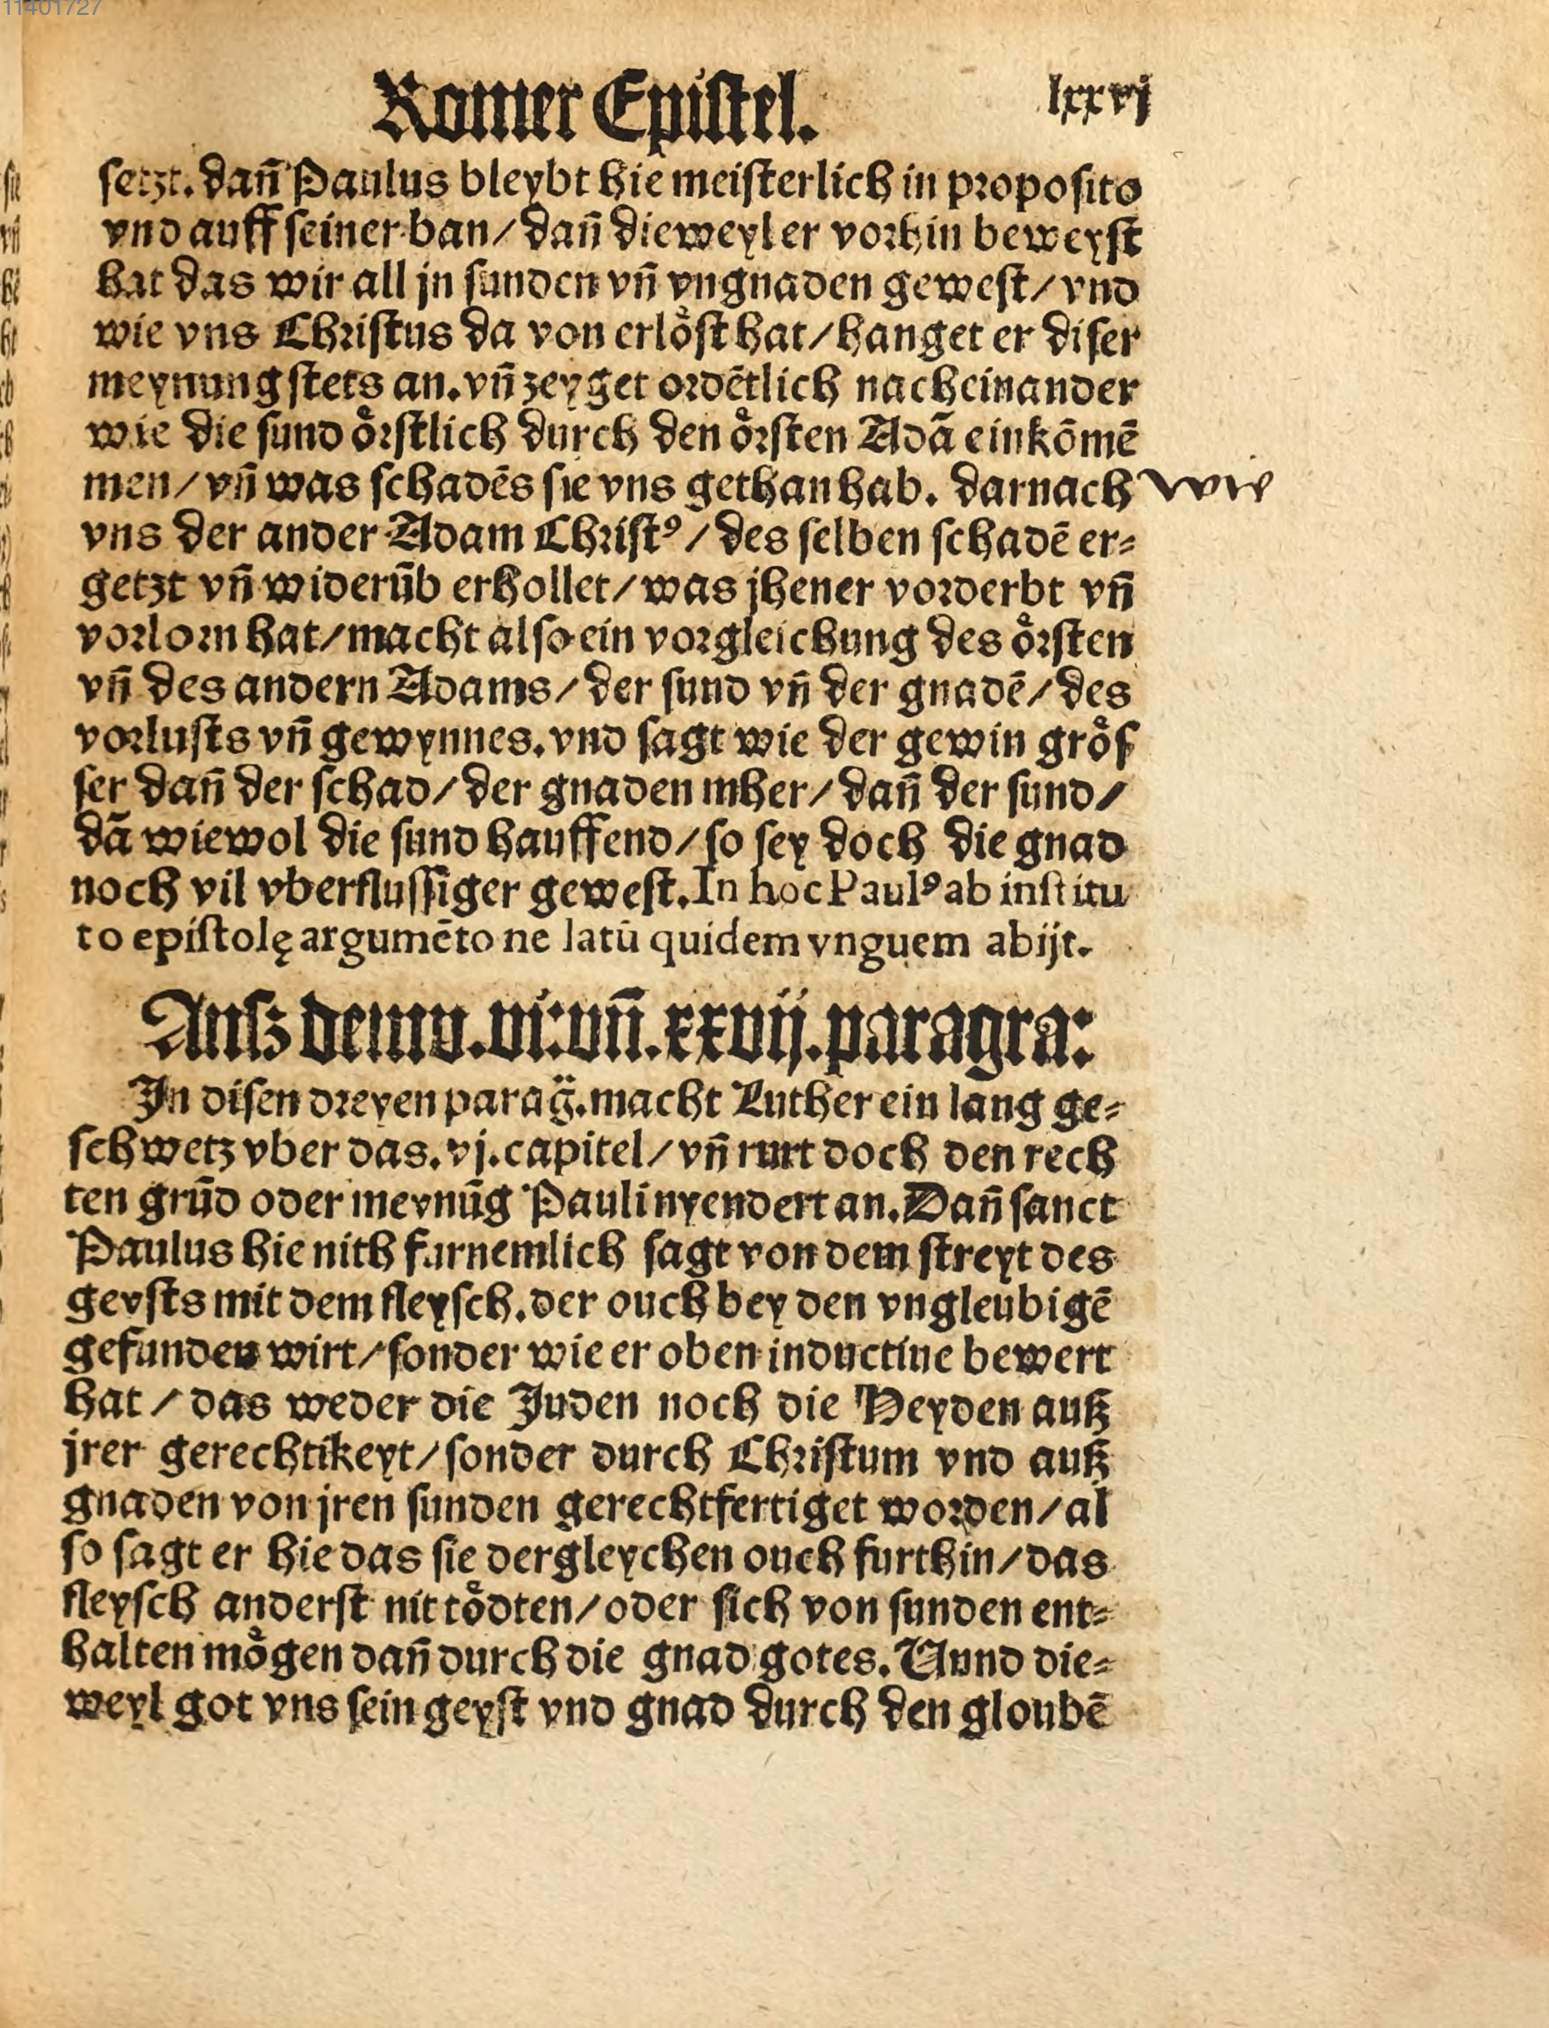 11401727
Romer Epistel. lxxvj
setzt. dañ Paulus bleybt hie meisterlich in proposito
vnd auff seiner ban/ dañ dieweyl er vorhin beweyst
hat das wir all jn sunden vñ vngnaden gewest/ vnd
wie vns Christus da von erlöst hat/ hanget er diser
meynung stets an. vñ zeyget ordẽtlich nacheinander
wie die sund örstlich durch den örsten Adã einkõmẽ
men/ vñ was schadẽs sie vns gethan hab. darnach wie
vns der ander Adam Christꝰ/ des selben schadẽ er⸗
getzt vñ widerũb erhollet/ was jhener vorderbt vñ
vorlorn hat/ macht also ein vorgleichung des örsten
vñ des andern Adams/ der sund vñ der gnadẽ/ des
vorlusts vñ gewynnes. vnd sagt wie der gewin grös
ser dañ der schad/ der gnaden mher/ dañ der sund/
dã wiewol die sund hauffend/ so sey doch die gnad
noch vil vberflussiger gewest. In hoc Paulꝰ ab institu
to epistolę argumẽto ne latũ quidem vnguem abijt.
Ausz dem v. vi. vñ. xxvij. paragra:
In disen dreyen parag̃. macht Luther ein lang ge⸗
schwetz vber das. vj. capitel/ vñ rurt doch den rech
ten grũd oder meynũg Pauli nyendert an. Dañ sanct
Paulus hie nith furnemlich sagt von dem streyt des
geysts mit dem fleysch. der ouch bey den vngleubigẽ
gefunden wirt/ sonder wie er oben inductiue bewert
hat/ das weder die Juden noch die Heyden auß
jrer gerechtikeyt/ sonder durch Christum vnd auß
gnaden von jren sunden gerechtfertiget worden/ al
so sagt er hie das sie dergleychen ouch furthin/ das
fleysch anderst nit tödten/ oder sich von sunden ent⸗
halten mögen dañ durch die gnad gotes. Vnnd die⸗
weyl got vns sein geyst vnd gnad durch den gloubẽ